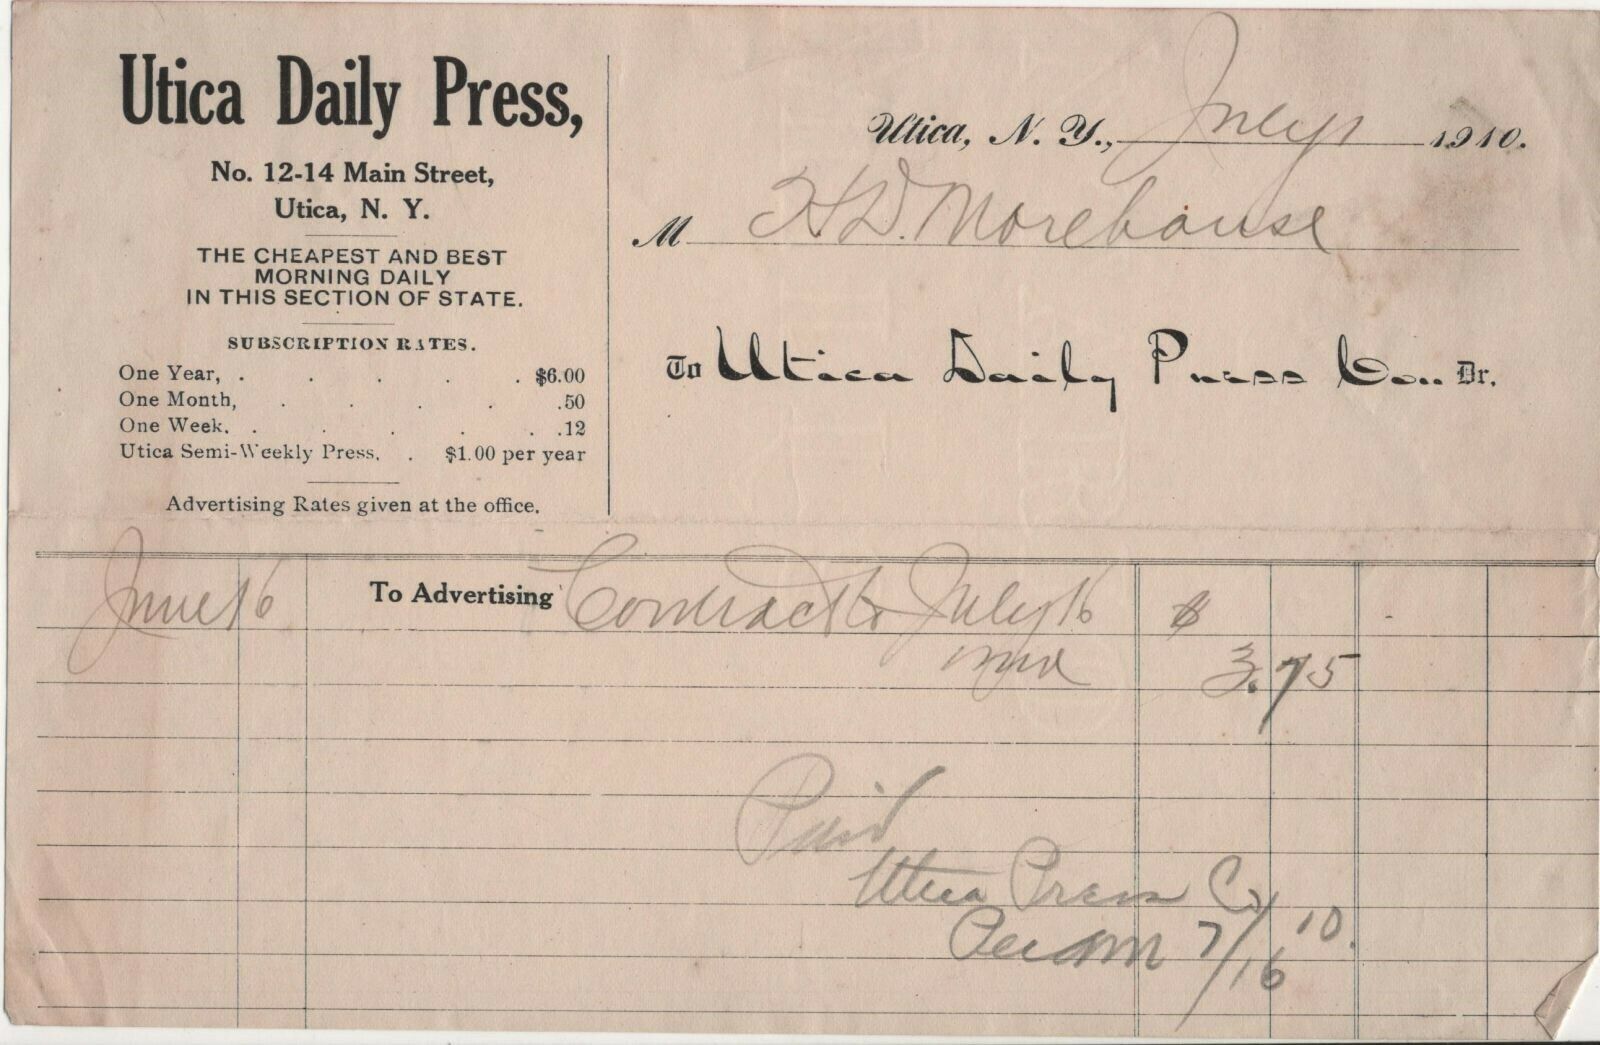 Utica Daily Press,
No. 12-14 Main Street,
Utica, N. Y.
THE CHEAPEST AND BEST
MORNING DAILY
IN THIS SECTION OF STATE.
SUBSCRIPTION RATES.
One Year, . . . . . $6.00
One Month, . . . . .50
One Week. . . . . . .12
Utica Semi-Weekly Press. . $1.00 per year
Advertising Rates given at the office.
Utica, N. Y., July 1 1910.
M H D. Morehouse
To Utica Daily Press Co.. Dr.
June 16 To Advertising Contract to July 16 $
3.75
Paid
Utica Press Co
Per 7/16 10.